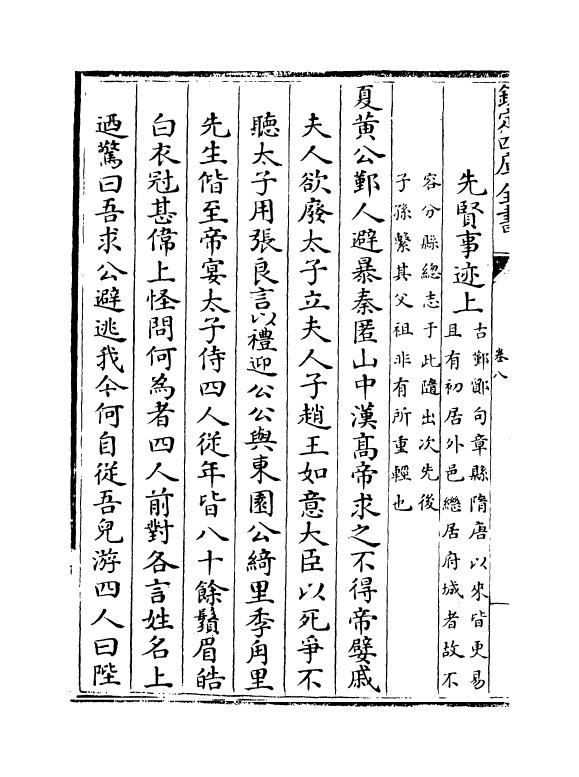 欽定四庫全書
卷八
先賢事迹上
古鄞鄮句章縣隋唐以來皆更易
且有初居外邑繼居府城者故不
容分縣總志于此隨出次先後
子孫繫其父祖非有所重輕也
夏黃公鄞人避暴秦匿山中漢髙帝求之不得帝嬖戚
夫人欲廢太子立夫人子趙王如意大臣以死爭不
聽太子用張良言以禮迎公公與東園公綺里季角里
先生偕至帝宴太子侍四人從年皆八十餘鬚眉皓
白衣冠甚偉上怪問何為者四人前對各言姓名上
迺驚曰吾求公避逃我今何自從吾兒游四人曰陛